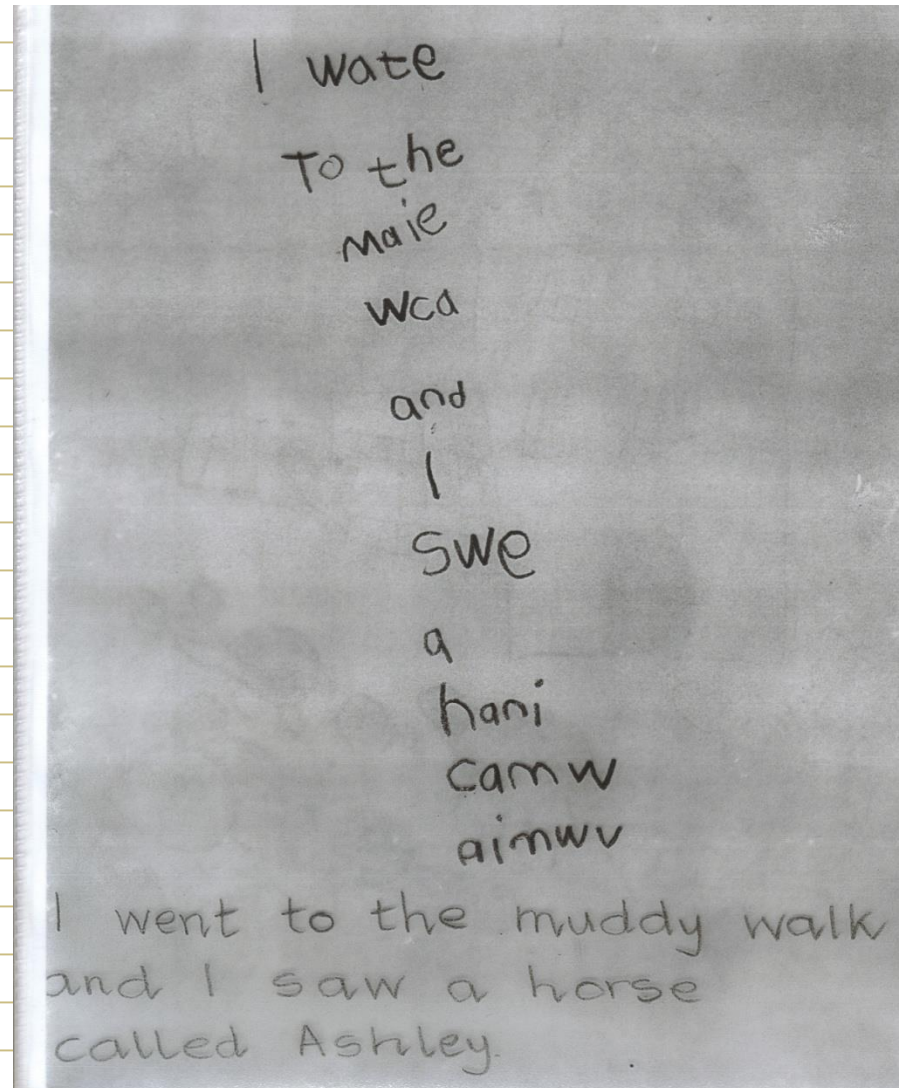 I wate
To the
maie
wca
and
I
swe
a
hani
camw
aimwv
I went to the muddy walk
and I saw a horse
called Ashley.